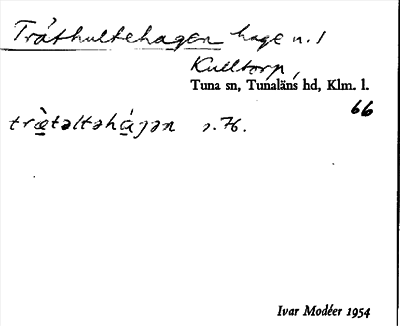 Tråthultehagen hage n. 1
Kulltorp,
Tuna sn, Tunaläns hd, Klm. l.
66
s. 76.
Ivar Modéer 1954